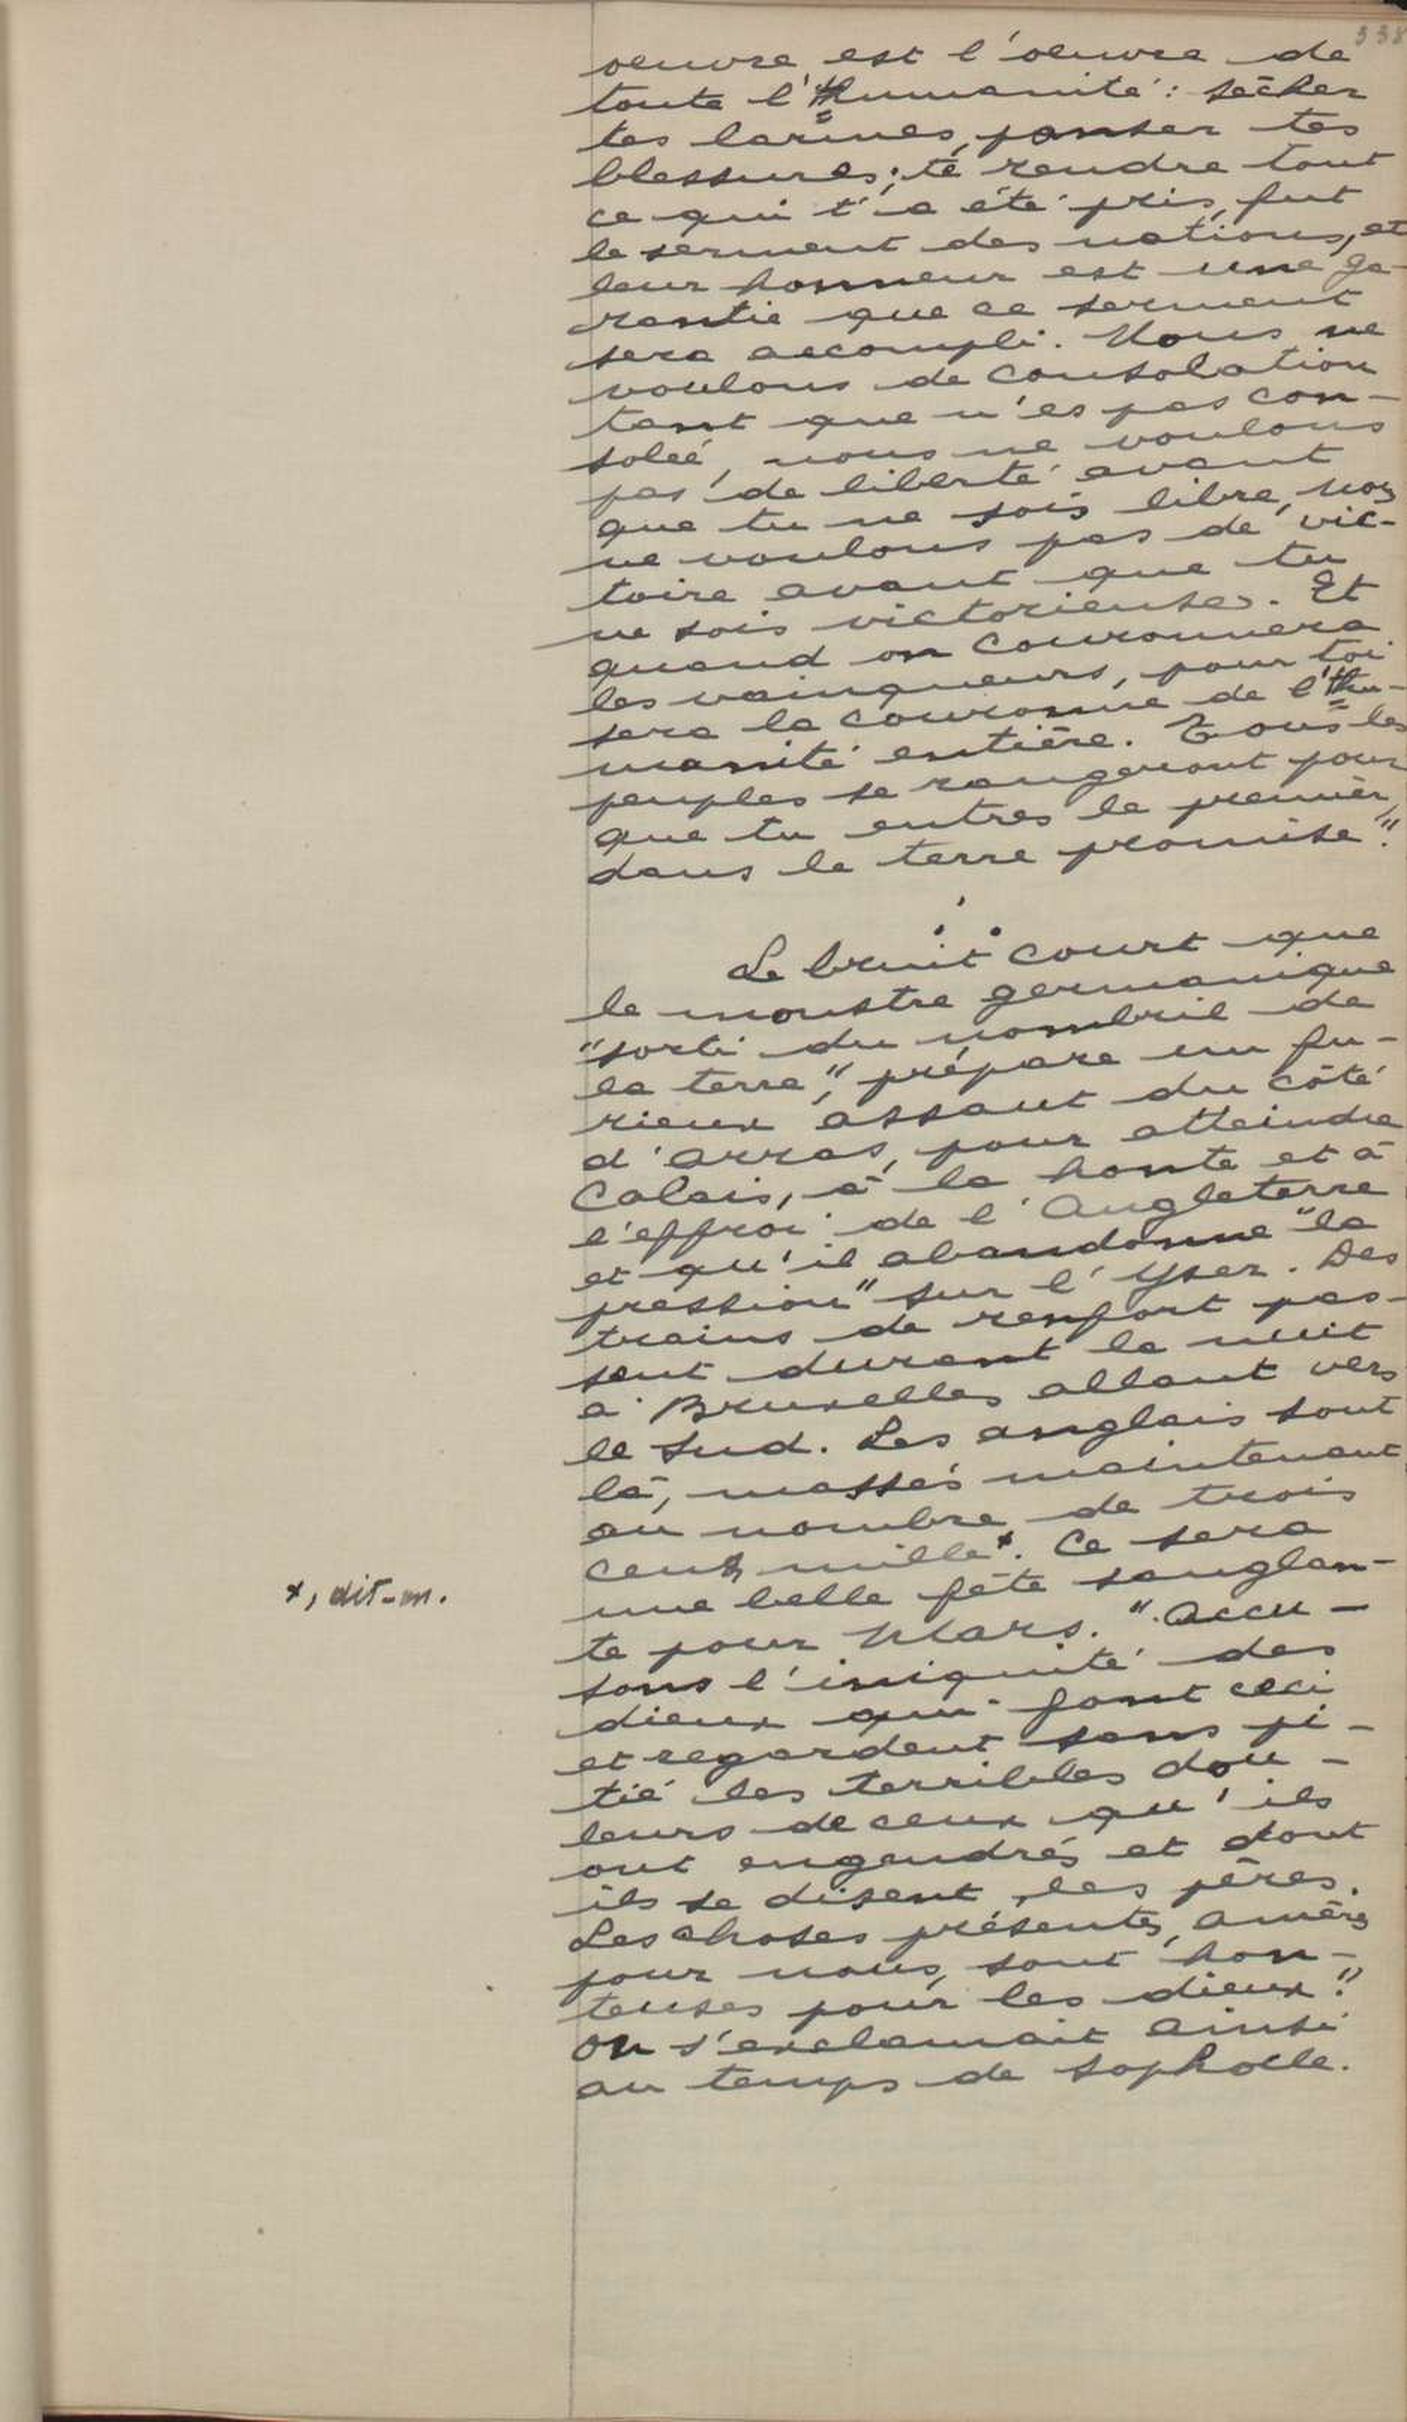 338
oeuvre est l'oeuvre de
toute l'Humanité: sécher
tes larmes, panser tes
blessures; te rendre tout
ce qui t'a été pris, fut
le serment des nations, et
leur honneur est une ga-
rantie que ce serment
sera accompli. Nous ne
voulons de consolation
tant que n'es pas con-
solée, nous ne voulons
pas de liberté avant
que tu ne sois libre, nous
ne voulons pas de vic-
toire avant que tu
ne sois victorieuse. Et
quand on couronnera
les vainqueurs, pour toi
sera la couronne de l'Hu-
manité entière. Tous les
peuples se rangeront pour
que tu entres la première,
dans la terre promise."
Le bruit court que
le monstre germanique
"sorti du nombril de
la terre", prépare un fu-
rieux assaut du côté
d'Arras, pour atteindre
Calais, à la honte et à
l'effroi de l'Angleterre
et qu'il abandonne "la
pression" sur l'Yser. Des
trains de renfort pas-
sent durant la nuit
à Bruxelles allant vers
le Sud. Les anglais sont
là, massés maintenant
au nombre de trois
cent mille*. Ce sera
une belle fête sanglan-
*, dit-on.
te pour Mars. "Accu-
sons l'iniquité des
dieux qui font ceci
et regardent sans pi-
tié les terribles dou-
leurs de ceux qu'ils
ont engendrés et dont
ils se disent les pères.
Les choses présentes, amères
pour nous, sont hon-
teuses pour les dieux!"
On s'exclamait ainsi
au temps de Sophocle.